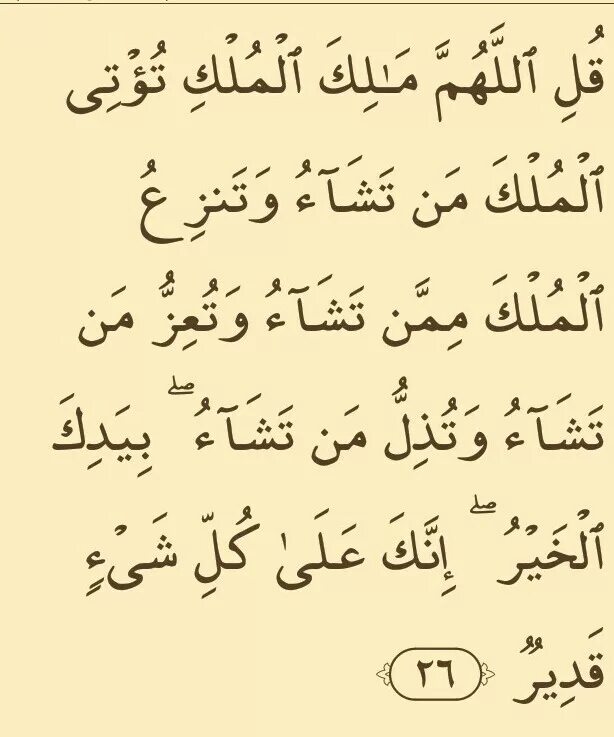 قُلِ ٱللَّهُمَّ مَـٰلِكَ ٱلْمُلْكِ تُؤْتِى
ٱلْمُلْكَ مَن تَشَآءُ وَتَنزِعُ
ٱلْمُلْكَ مِمَّن تَشَآءُ وَتُعِزُّ مَن
تَشَآءُ وَتُذِلُّ مَن تَشَآءُ ۖ بِيَدِكَ
ٱلْخَيْرُ ۖ إِنَّكَ عَلَىٰ كُلِّ شَىْءٍ
قَدِيرٌ ٢٦